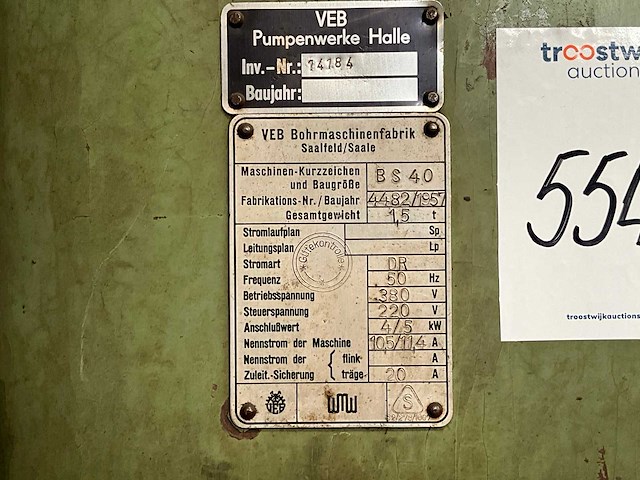 VEB
Pumpenwerke Halle
Inv.-Nr.: 14184
Baujahr:
VEB Bohrmaschinenfabrik
Saalfeld/Saale
Maschinen-Kurzzeichen
und Baugröße BS 40
Fabrikations-Nr./Baujahr 4482/1957
Gesamtgewicht 1,5 t
Stromlaufplan Sp
Leitungsplan Lp
Gütekontrolle
Stromart DR
Frequenz 50 Hz
Betriebsspannung 380 V
Steuerspannung 220 V
Anschlußwert 4/5 kW
Nennstrom der Maschine 105/11,4 A
Nennstrom der { flink A
Zuleit.-Sicherung träge 20 A
VEB WMW S
troostw
auction
554
troostwijkauctions